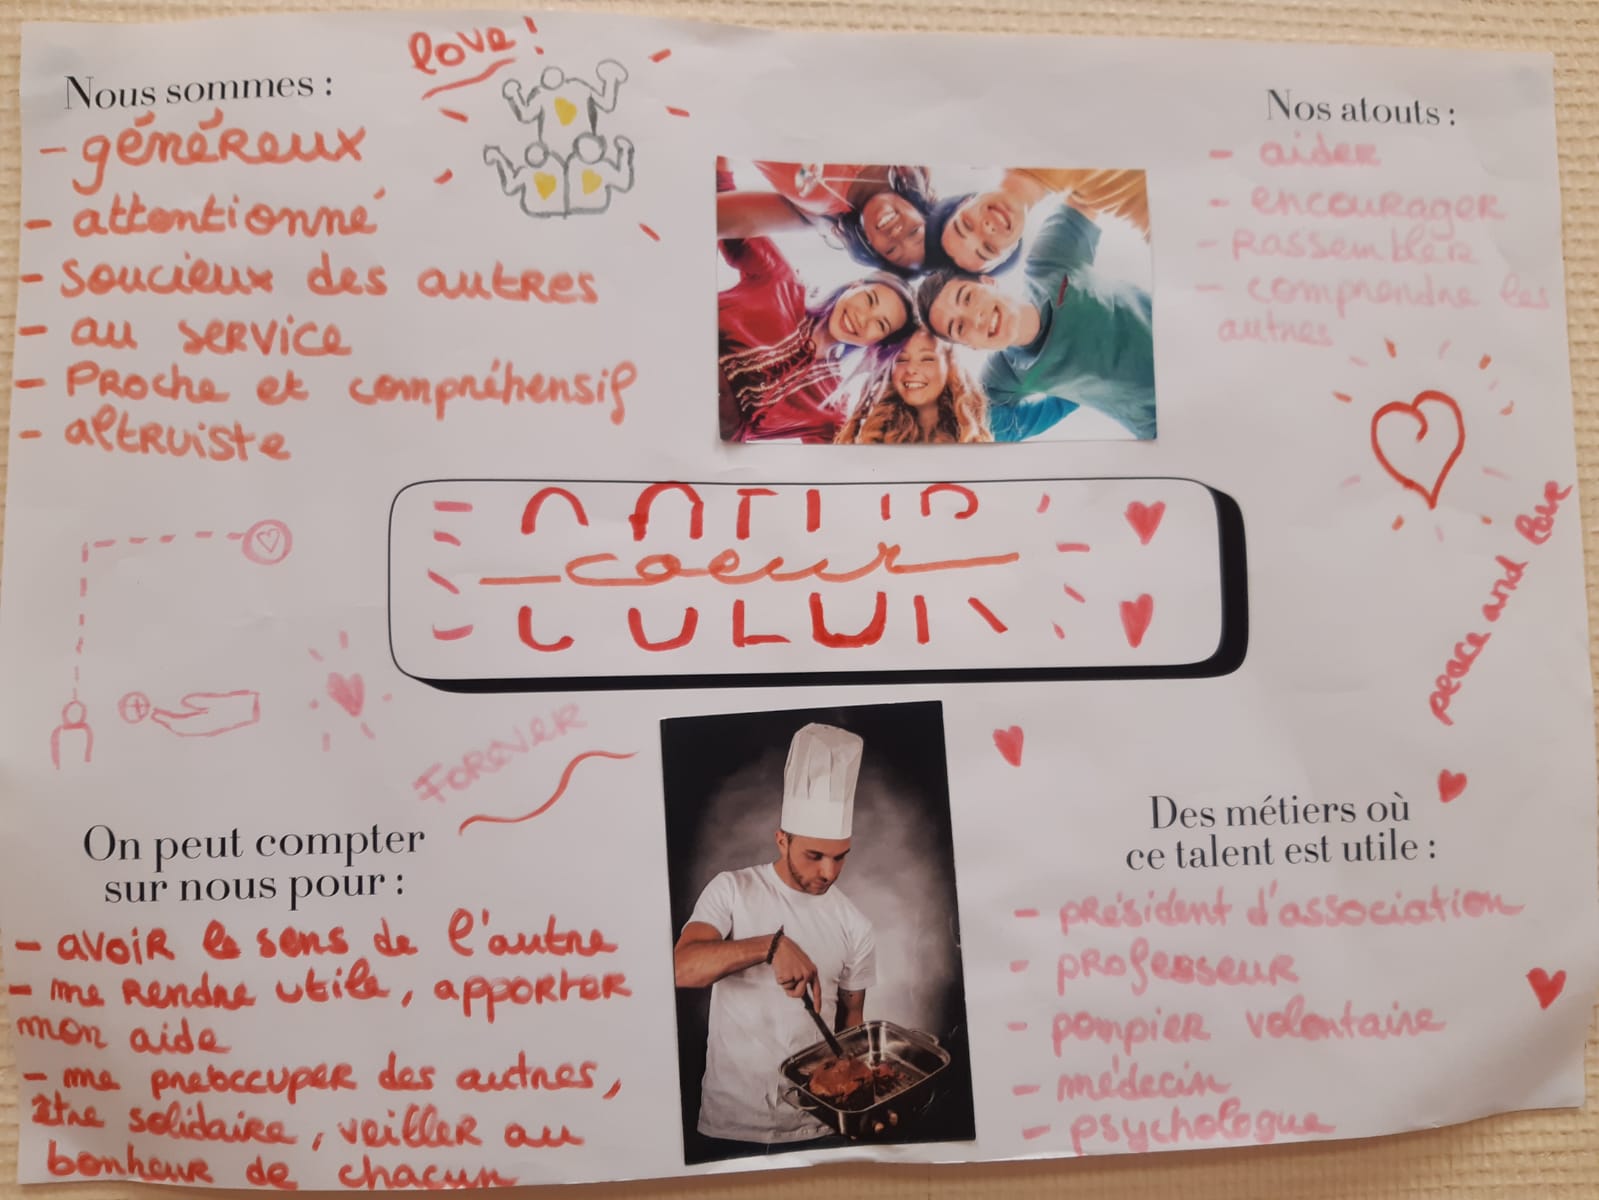 love !
Nous sommes :
- généreux
- attentionné
- soucieux des autres
- au service
- Proche et compréhensif
- altruiste
Nos atouts :
- aider
- encourager
- Rassembler
- comprendre les
autres
coeur
peace and love
FOREVER
On peut compter
sur nous pour :
- avoir le sens de l'autre
- me rendre utile, apporter
mon aide
- me préoccuper des autres,
être solidaire, veiller au
bonheur de chacun
Des métiers où
ce talent est utile :
- président d'association
- professeur
- pompier volontaire
- médecin
- psychologue